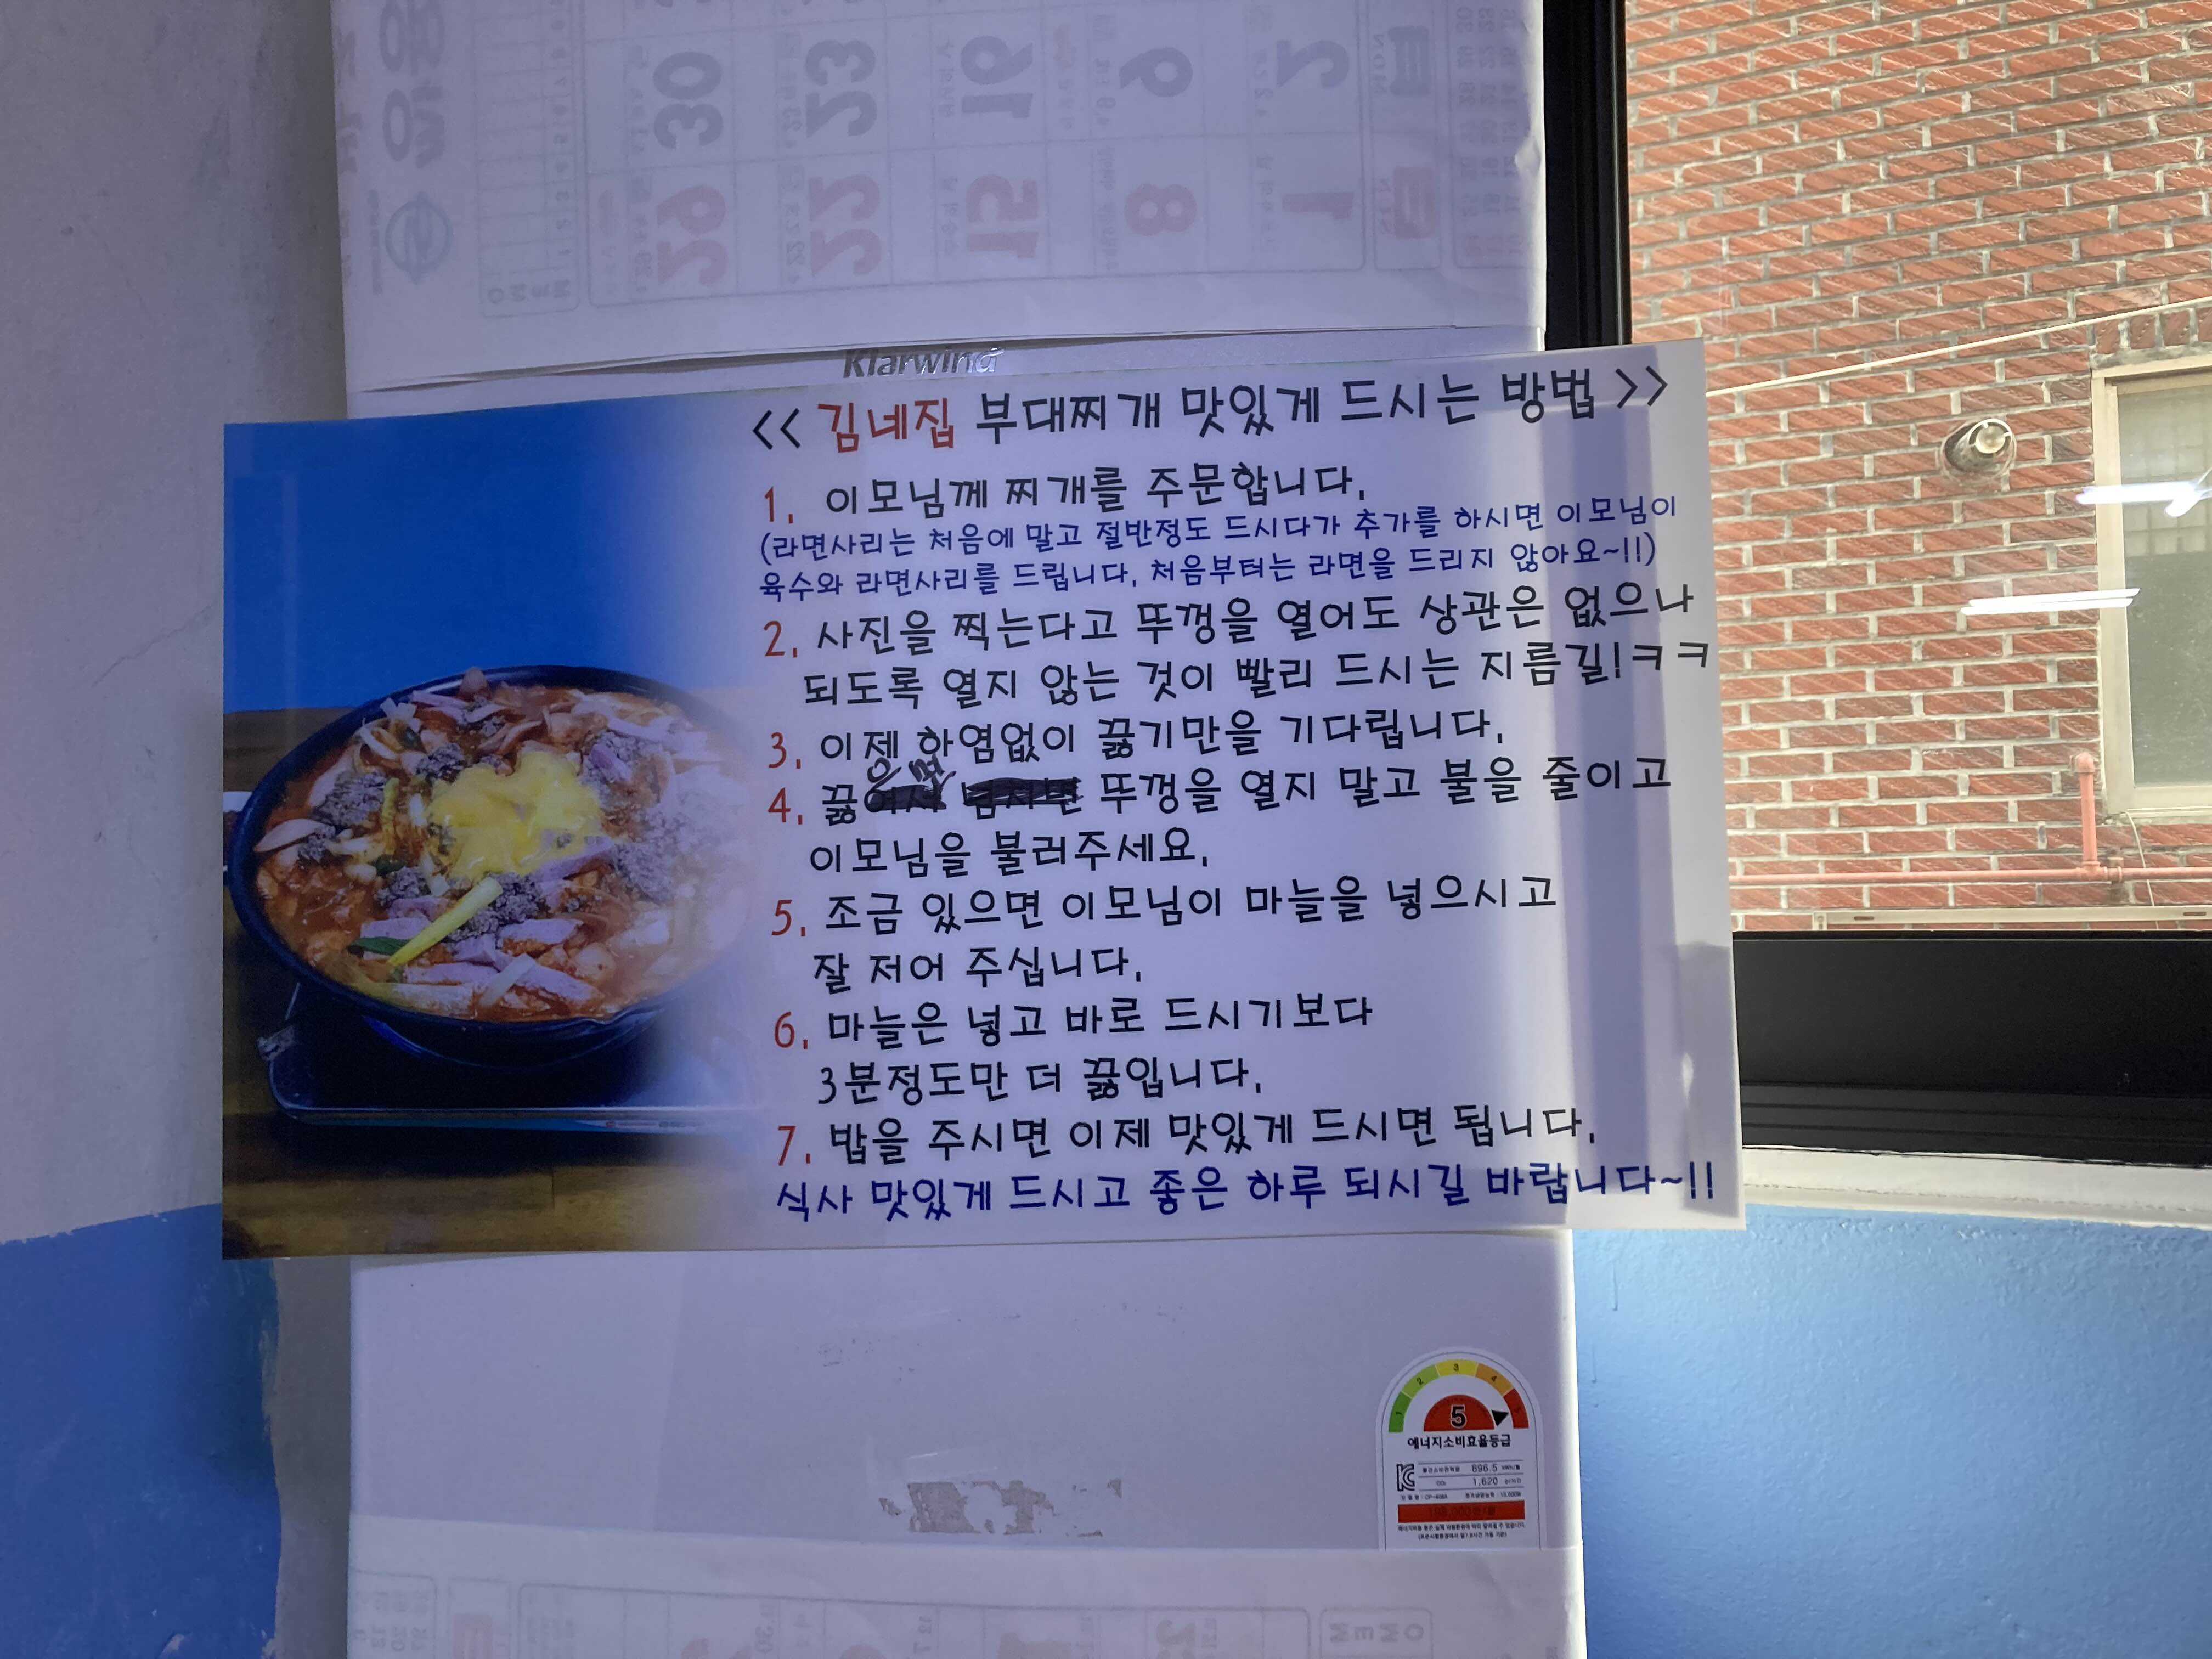 Klarwind
<< 김네집 부대찌개 맛있게 드시는 방법 >>
1. 이모님께 찌개를 주문합니다.
(라면사리는 처음에 말고 절반정도 드시다가 추가를 하시면 이모님이
육수와 라면사리를 드립니다. 처음부터는 라면을 드리지 않아요~!!)
2. 사진을 찍는다고 뚜껑을 열어도 상관은 없으나
되도록 열지 않는 것이 빨리 드시는 지름길!ㅋㅋ
3. 이제 하염없이 끓기만을 기다립니다.
4. 끓으면 뚜껑을 열지 말고 불을 줄이고
이모님을 불러주세요.
5. 조금 있으면 이모님이 마늘을 넣으시고
잘 저어 주십니다.
6. 마늘은 넣고 바로 드시기보다
3분정도만 더 끓입니다.
7. 밥을 주시면 이제 맛있게 드시면 됩니다.
식사 맛있게 드시고 좋은 하루 되시길 바랍니다~!!
1 2 3 4 5
5
에너지소비효율등급
896.5
1,620
30 23 16 9 2
29 22 15 8 1